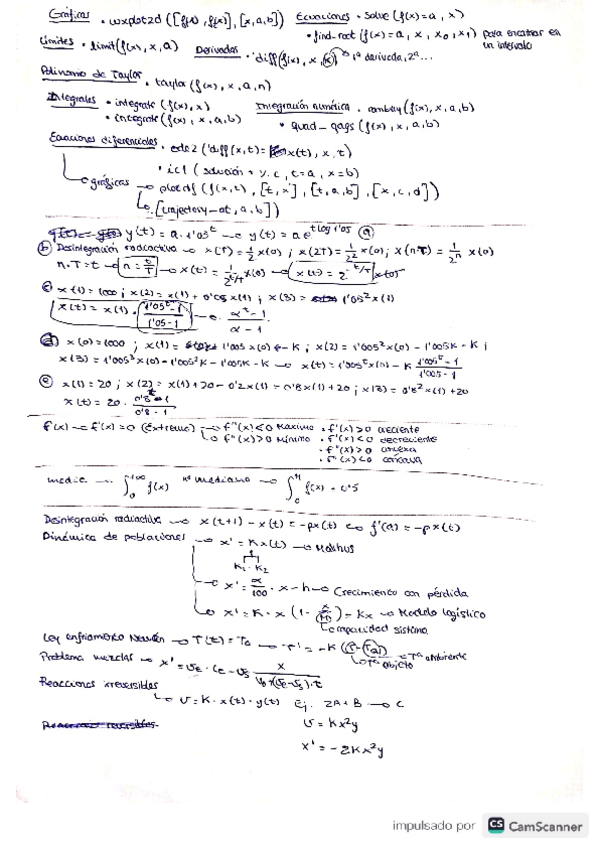 Gráficas • wxplot2d ([f(x), f(x)], [x,a,b]) Ecuaciones • solve (f(x)=a, x)
• find_root (f(x)=a, x, x0, x1) para encontrar en un intervalo
Límites • limit(f(x), x, a) Derivadas • diff(f(x), x, k) → 1ª derivada, 2ª...
Polinomio de Taylor • taylor (f(x), x, a, n)
Integrales • integrate (f(x), x) Integración numérica • romberg (f(x), x, a, b)
• integrate (f(x), x, a, b) • quad_qags (f(x), x, a, b)
Ecuaciones diferenciales • ode2 ('diff(x,t)= x(t), x, t)
• ic1 (solución + y.c, t=a, x=b)
gráficas → plotdf (f(x,t), [t,x], [t,a,b], [x,c,d])
[trajectory_at, a, b])
y(t) = a · 1'05^t → y(t) = a e^(t log 1'05) (a)
(b) Desintegración radiactiva → x(T) = 1/2 x(0) ; x(2T) = 1/2² x(0) ; x(n·T) = 1/2^n x(0)
n·T = t → n = t/T → x(t) = 1/2^(t/T) x(0) → x(t) = 2^(-t/T) x(0)
(c) x(1) = 1000 ; x(2) = x(1) + 0'05 x(1) ; x(3) = 1'05² x(1)
x(t) = x(1) · (1'05^t - 1)/(1'05 - 1) → (α^t - 1)/(α - 1)
(d) x(0) = 1000 ; x(1) = 1'005 x(0) - K ; x(2) = 1'005² x(0) - 1'005K - K ;
x(3) = 1'005³ x(0) - 1'005² K - 1'005K - K → x(t) = 1'005^t x(0) - K (1'005^t - 1)/(1'005 - 1)
(e) x(1) = 20 ; x(2) = x(1) + 20 - 0'2x(1) = 0'8 x(1) + 20 ; x(3) = 0'8² x(1) + 20
x(t) = 20 · (0'8^t - 1)/(0'8 - 1)
f(x) → f'(x) = 0 (Extremo) → f''(x) < 0 Máximo • f'(x) > 0 creciente
→ f''(x) > 0 Mínimo • f'(x) < 0 decreciente
• f''(x) > 0 convexa
• f''(x) < 0 cóncava
media → ∫ f(x) mediano → ∫ f(x) = 0'5
Desintegración radiactiva → x(t+1) - x(t) = -px(t) → f'(a) = -px(t)
Dinámica de poblaciones → x' = Kx(t) → Malthus
K1 - K2
→ x' = α/100 · x - h → Crecimiento con pérdida
→ x' = K · x (1 - x/M) = Kx → Modelo logístico
capacidad sistema
Ley enfriamiento Newton → T(t) = Ta → T' = -K (T - Ta) → Tª ambiente
Tª objeto
Problema mezclas → x' = ve · ce - vs x/(V0 + (ve - vs) · t)
Reacciones irreversibles
→ v = K · x(t) · y(t) Ej. 2A + B → C
v = Kx²y
x' = -2Kx²y
impulsado por CS CamScanner